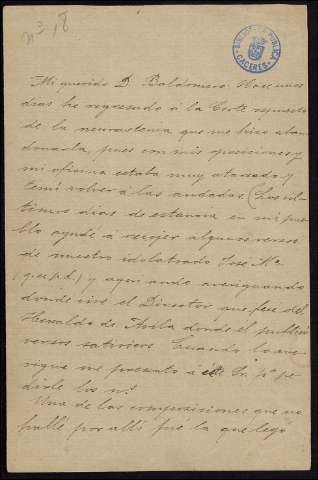 nº 3, 8
BIBLIOTECA PUBLICA CACERES
Mi querido D. Baldomero: Hace unos
dias he regresado á la Corte repuesto
de la neurastenia que me hizo aban
donarla, pues con mis oposiciones y
mi oficina estaba muy atareado y
temí volver á las andadas. Los úl-
timos dias de estancia en mi pue-
blo ayudé á recojer algunos versos
de nuestro idolatrado José Mª
(q.e.p.d.) y aqui ando averiguando
donde vive el Director que fué del
Heraldo de Avila donde él publicó
versos satiricos. Cuando lo ave-
rigüe me presento á este Sr. pª pe-
dirle los nºs
Una de las composiciones que no
hallé por allí fué la que leyó